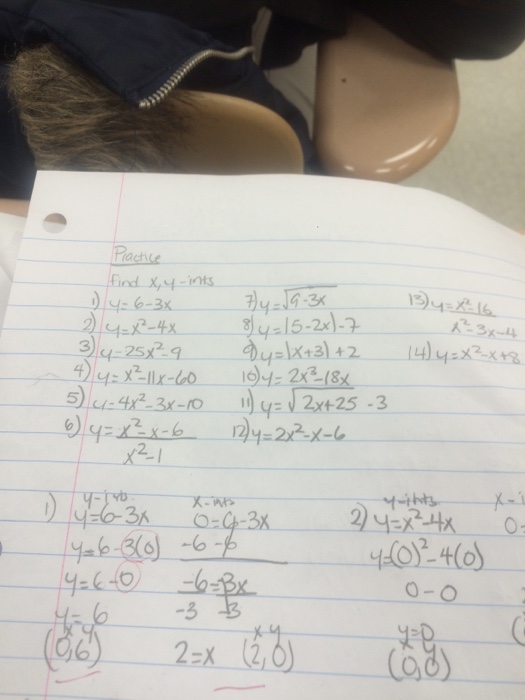 Practice
find x,y-ints
1) y=6-3x
2) y=x²-4x
3) y=25x²-9
4) y=x²-11x-60
5) y=4x²-3x-10
6) y=x²-x-6
x²-1
7) y=√9-3x
8) y=|5-2x|-7
9) y=|x+3|+2
10) y=2x³-18x
11) y=√2x+25 -3
12) y=2x²-x-6
13) y=x²-16
x²-3x-4
14) y=x²-x+8
1) y-ints
y=6-3x
y=6-3(0)
y=6-0
y=6
x y
(0,6)
x-ints
0=6-3x
-6 -6
-6=-3x
-3 -3
2=x
x y
(2,0)
2) y-ints
y=x²-4x
y=(0)²-4(0)
0-0
y=0
x y
(0,0)
0=
(